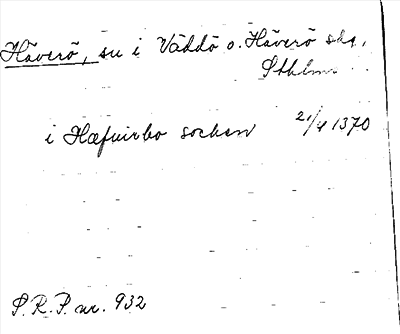 Häverö, sn i Väddö o. Häverö skg,
Sthlms
i Hæfuirbo sochen 21/4 1370
S.R.P. nr. 932